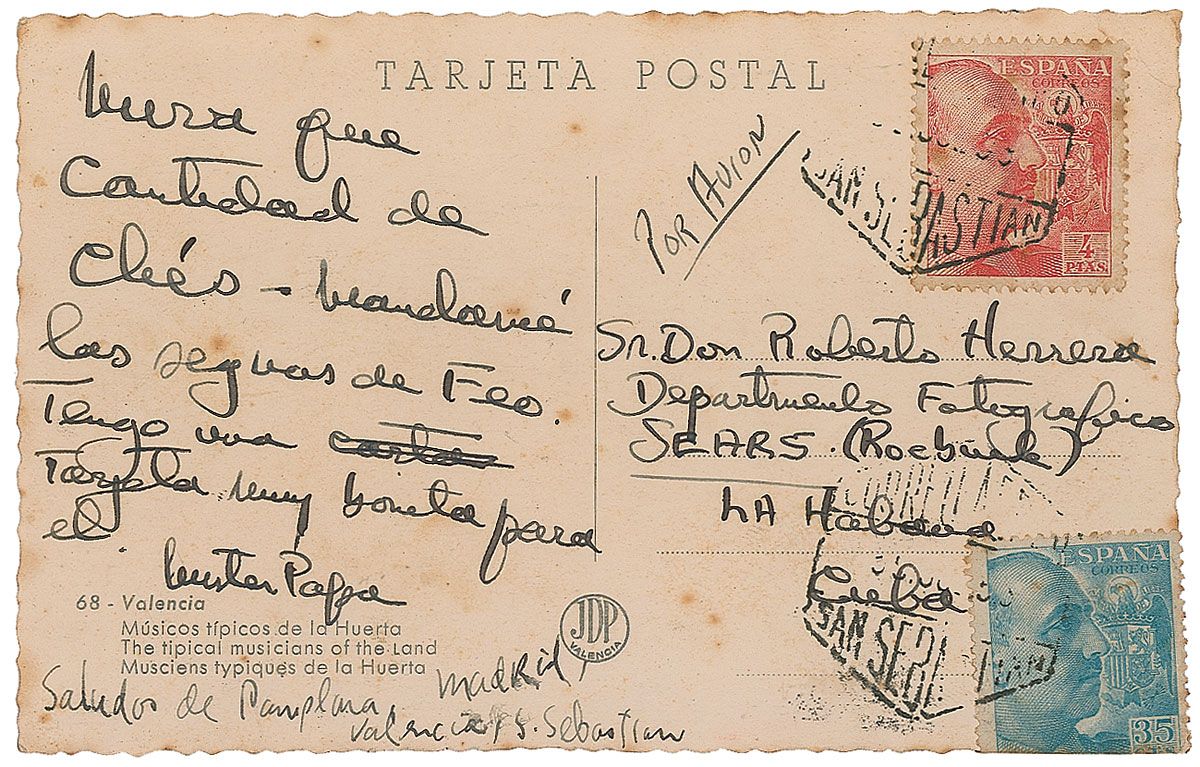 TARJETA POSTAL
Mira que
Cantidad de
Chés - Mandame
las segnas de Feo.
Tengo una
Tarjeta muy bonita para
el.
Mister Papa
68 - Valencia
Músicos típicos de la Huerta
The tipical musicians of the Land
Musciens typiques de la Huerta
Saludos de Pamplona, Madrid,
Valencia y S. Sebastian
JDP
VALENCIA
POR AVION
Sr. Don Roberto Herrera
Departmento Fotografico
SEARS. (Roebuck)
LA Habana
Cuba
ESPAÑA
CORREOS
4
PTAS
SAN SEBASTIAN
ESPAÑA
CORREOS
35
SAN SEBASTIAN